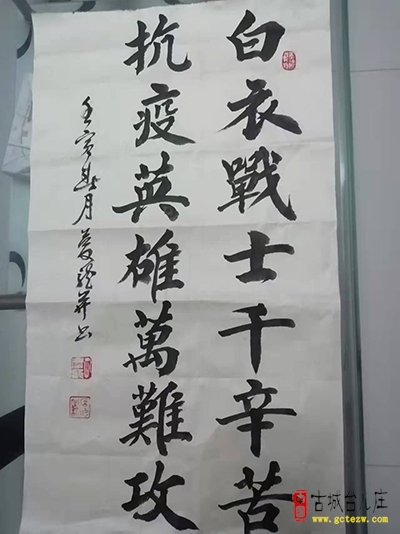 白衣戰士千辛苦
抗疫英雄萬難攻
壬寅
月
古城台儿庄
www.gctezw.com